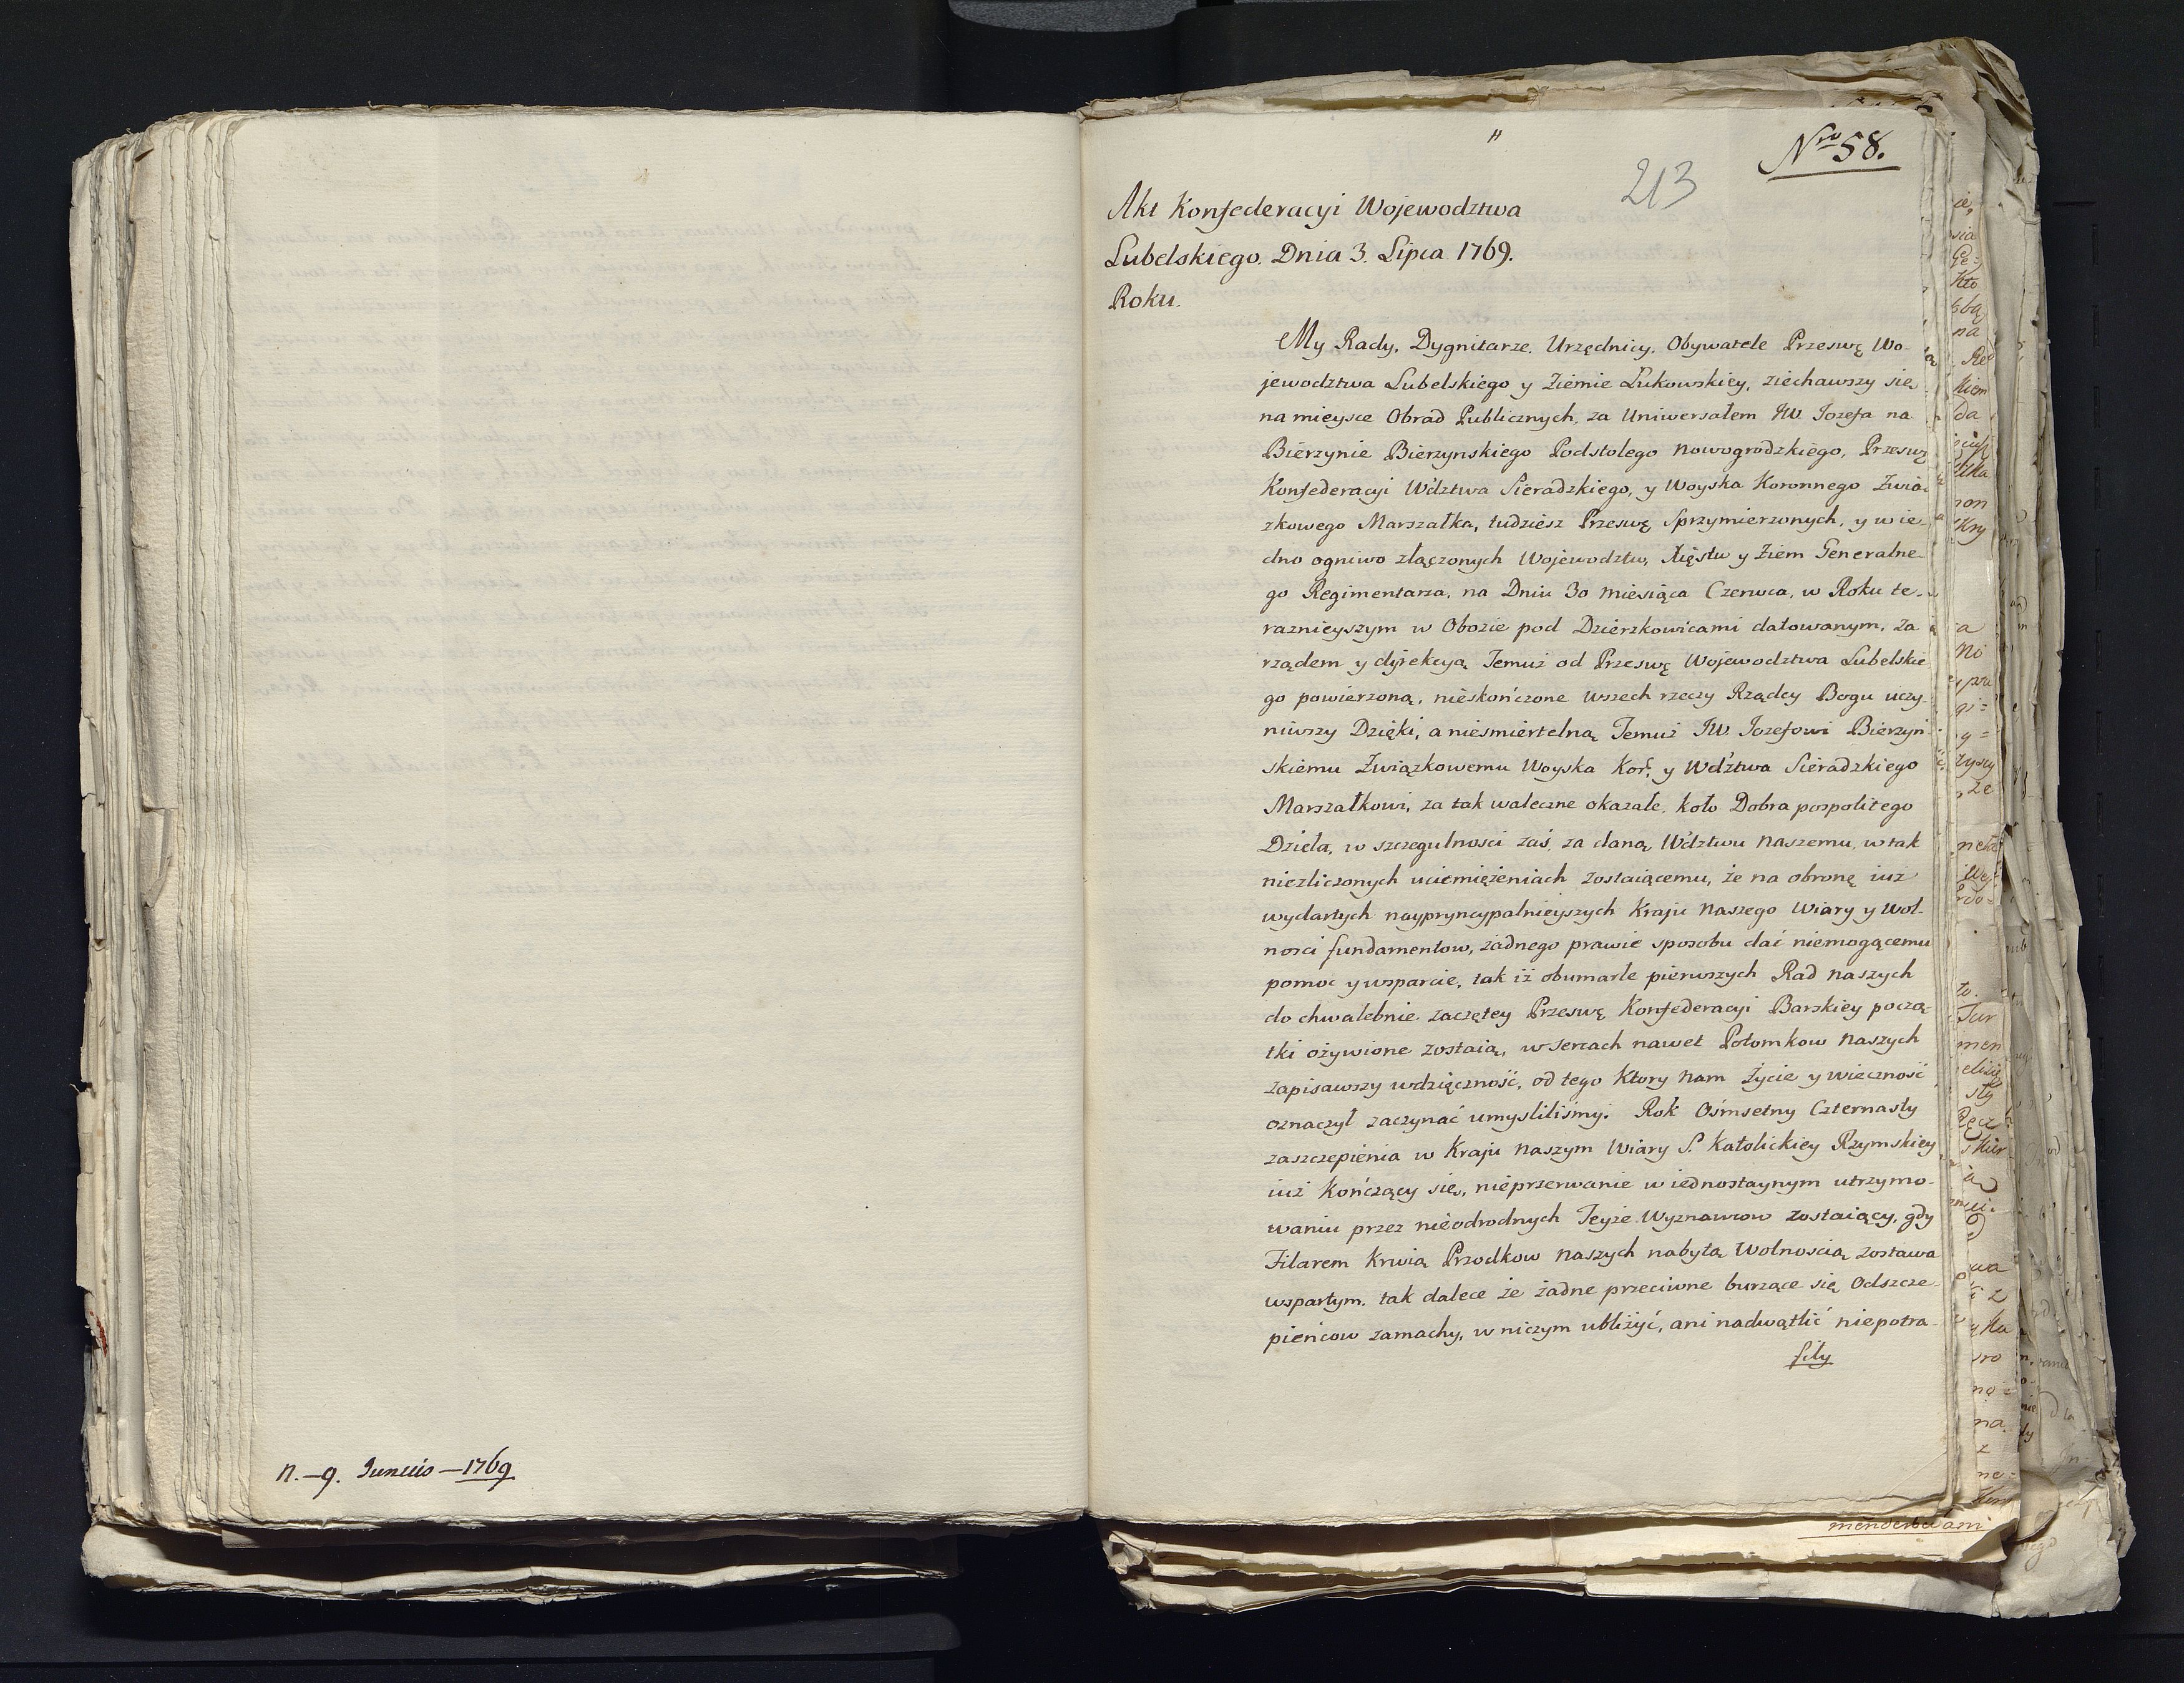 n. – 9. Junuio – 1769
Nro 58.
213
Akt Konfederacyi Wojewodztwa
Lubelskiego. Dnia 3. Lipca 1769.
Roku.
My Rady, Dygnitarze, Urzędnicy, Obywatele Przeswę Wo-
jewodztwa Lubelskiego y Ziemie Łukowskiey, ziechawszy się
na mieysce Obrad Publicznych, za Uniwersałem JW. Jozefa na
Bierzynie Bierzynskiego Podstolego Nowogrodzkiego, Przeswę
Konfederacyi Wdztwa Sieradzkiego, y Woyska Koronnego Zwią-
zkowego Marszałka, tudziesz Przeswę Sprzymierzonych, y w ie-
dno ogniwo złączonych Wojewodztw, Xięstw y Ziem Generalne-
go Regimentarza, na Dniu 30 miesiąca Czerwca, w Roku te-
raznieyszym w Obozie pod Dzierzkowicami datowanym, za
rządem y dyrekcyą Temuż od Przeswę Wojewodztwa Lubelskie-
go powierzoną, nieskończone wszech rzeczy Rządcy Bogu uczy-
niwszy Dzięki, a niesmiertelną Temuż JW. Jozefowi Bierzyn-
skiemu Związkowemu Woyska Kor. y Wdztwa Sieradzkiego
Marszałkowi, za tak waleczne okazałe, koło Dobra pospolitego
Dzieła, w szczegulnosci zaś, za daną Wdztwu naszemu, w tak
niezliczonych uciemiężeniach zostaiącemu, że na obronę iuż
wydartych naypryncypalnieyszych Kraju naszego Wiary y Wol-
nosci fundamentow, żadnego prawie sposobu dać niemogącemu
pomoc y wsparcie, tak iż obumarłe pierwszych Rad naszych
do chwalebnie zaczętey Przeswę Konfederacyi Barskiey począ-
tki ożywione zostaią, w sercach nawet Potomkow naszych
zapisawszy wdzięczność, od tego Ktory nam życie y wieczność
oznaczył zaczynać umyslilismy. Rok Ośmsetny Czternasty
zaszczepienia w Kraju naszym Wiary S. Katolickiey Rzymskiey
iuż Kończący się, nieprzerwanie w iednostaynym utrzymo-
waniu przez nieodrodnych Teyże Wyznawcow zostaiący, gdy
Filarem Krwią Przodkow naszych nabytą Wolnoscią zostawa
wspartym, tak dalece że żadne przeciwne burzące się Odszcze-
pieńcow zamachy, w niczym ubliżyć, ani nadwątlić niepotra-
fiły